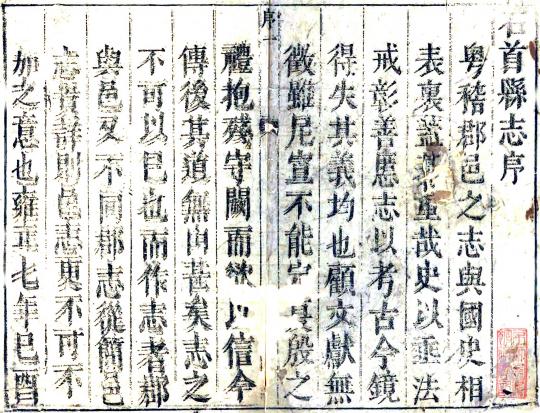 石首縣志序
粵稽郡邑之志與國史相
表裏蓋其重哉史以垂法
戒彰善慝志以考古今鏡
得失其義均也顧文獻無
徵雖尼宣不能定夏殷之
禮抱殘守闕而欲以信今
傳後其道無由甚矣志之
不可以已也而作志者郡
與邑又不同郡志從簡邑
志貴詳則邑志更不可不
加之意也雍正七年己酉
序一